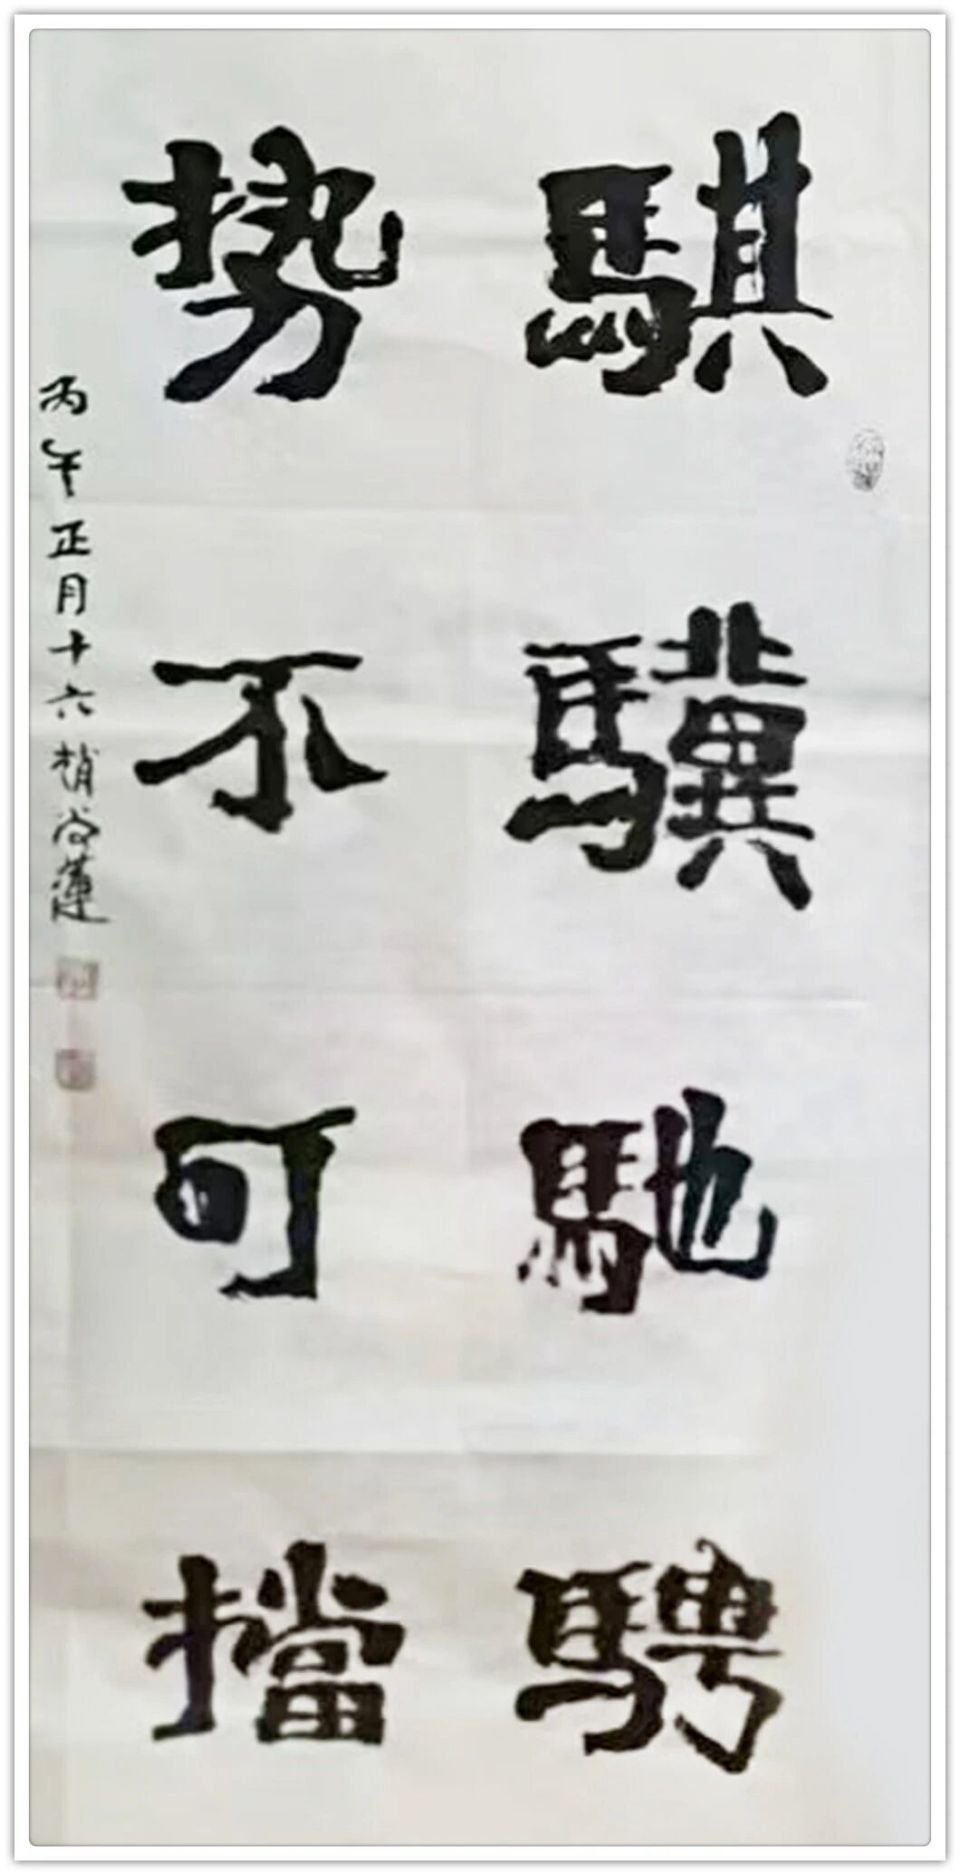 騏驥馳騁
势不可擋
丙午正月十六趙尚蓮